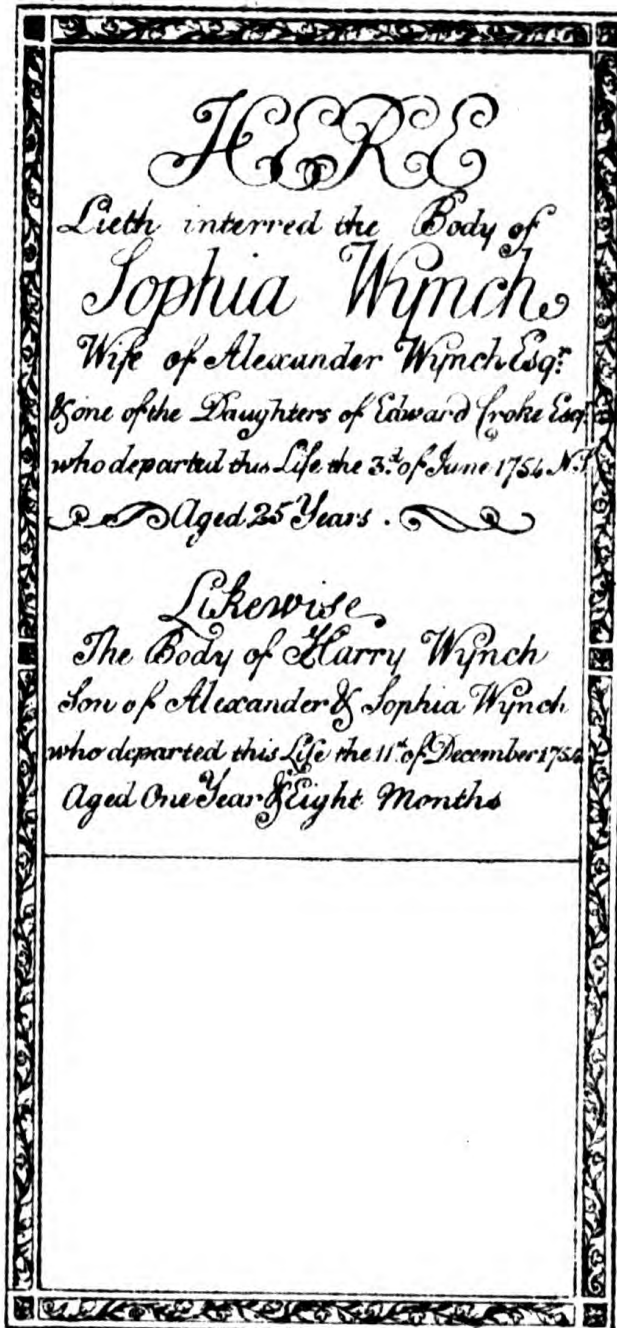 HERE
Lieth interred the Body of
Sophia Wynch
Wife of Alexander Wynch Esqr.
& one of the Daughters of Edward Croke Esqr
who departed this Life the 3.d of June 1754 N.S.
Aged 25 Years.
Likewise
The Body of Harry Wynch
Son of Alexander & Sophia Wynch
who departed this Life the 11th of December 1754
Aged One Year & Eight Months